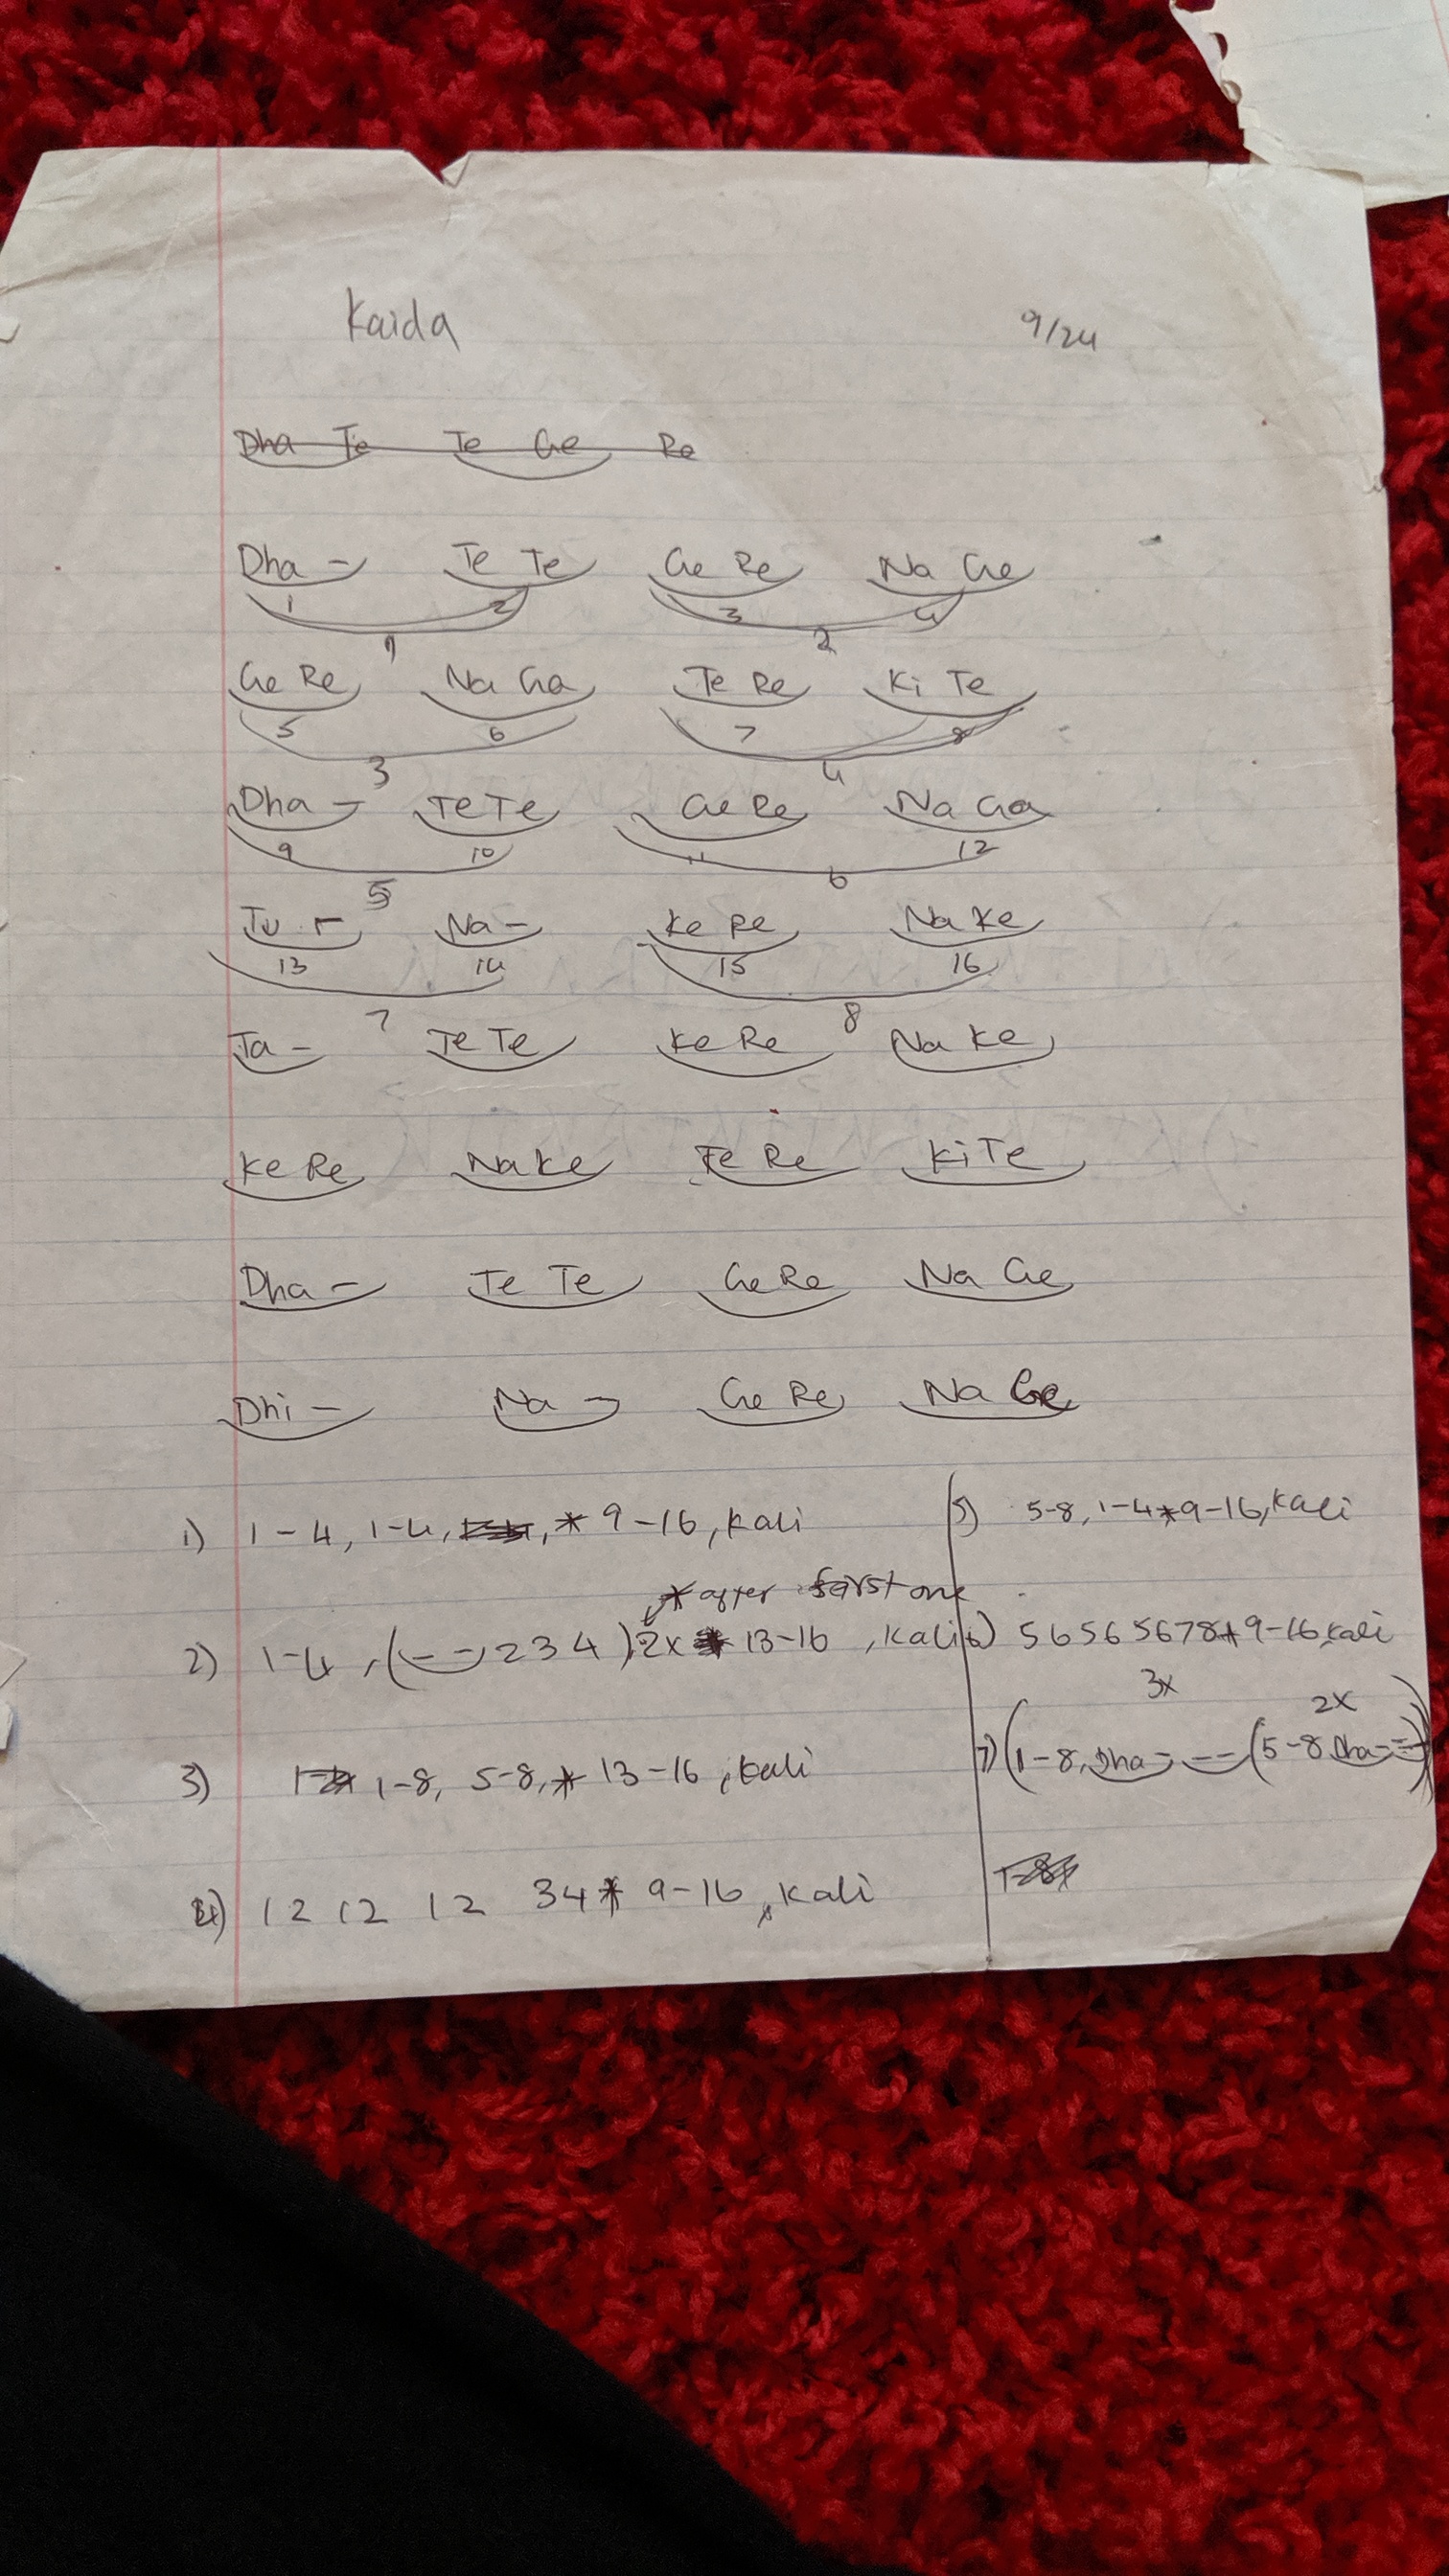 Kaida 9/24
Dha Te Te Ge Re
Dha - Te Te Ge Re Na Ge
1 2 3 4
1 2
Ge Re Na Ga Te Re Ki Te
5 6 7 8
3 4
Dha - Te Te Ge Re Na Ga
9 10 11 12
5 6
Tu - Na - Ke Re Na Ke
13 14 15 16
7 8
Ta - Te Te Ke Re Na Ke
Ke Re Na Ke Te Re Ki Te
Dha - Te Te Ge Re Na Ge
Dhi - Na - Ge Re Na Ge
1) 1-4, 1-4, * 9-16, Kali
* after first one
2) 1-4, (- - 2 3 4) 2x * 13-16, Kali
3) 1-8, 5-8, * 13-16, Kali
4) 12 12 12 34 * 9-16, Kali
5) 5-8, 1-4 * 9-16, Kali
6) 56565678 * 9-16, Kali
3x 2x
7) (1-8, Dha - - - (5-8 Dha - - -))